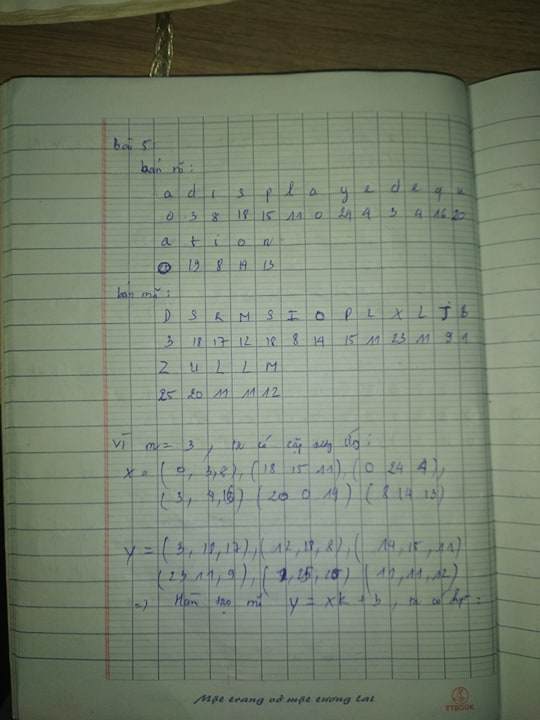 Bài 5:
bản rõ:
a d i s p l a y e d e q u
0 3 8 18 15 11 0 24 4 3 4 16 20
a t i o n
0 19 8 14 13
bản mã:
D S R M S I O P L X L J B
3 18 17 12 18 8 14 15 11 23 11 9 1
Z U L L M
25 20 11 11 12
Vì m = 3, ta có cặp tương ứng:
X = (0, 3, 8), (18 15 11), (0 24 4),
(3, 4, 16) (20 0 19) (8 14 13)
Y = (3, 18, 17), (12, 18, 8), (14, 15, 11)
(23 11, 9), (1, 25, 20) (11, 11, 12)
=> Hàm mã Y = XK + b, ta có hpt:
Một trang vở một tương lai
TTBOOK